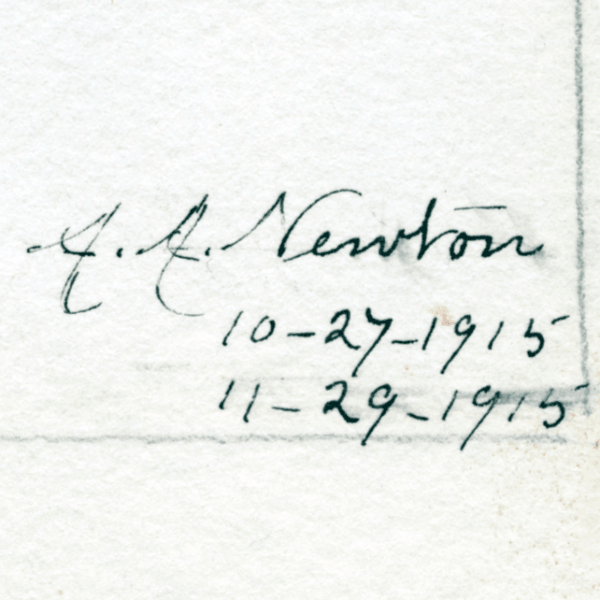 A. A. Newton
10-27-1915
11-29-1915